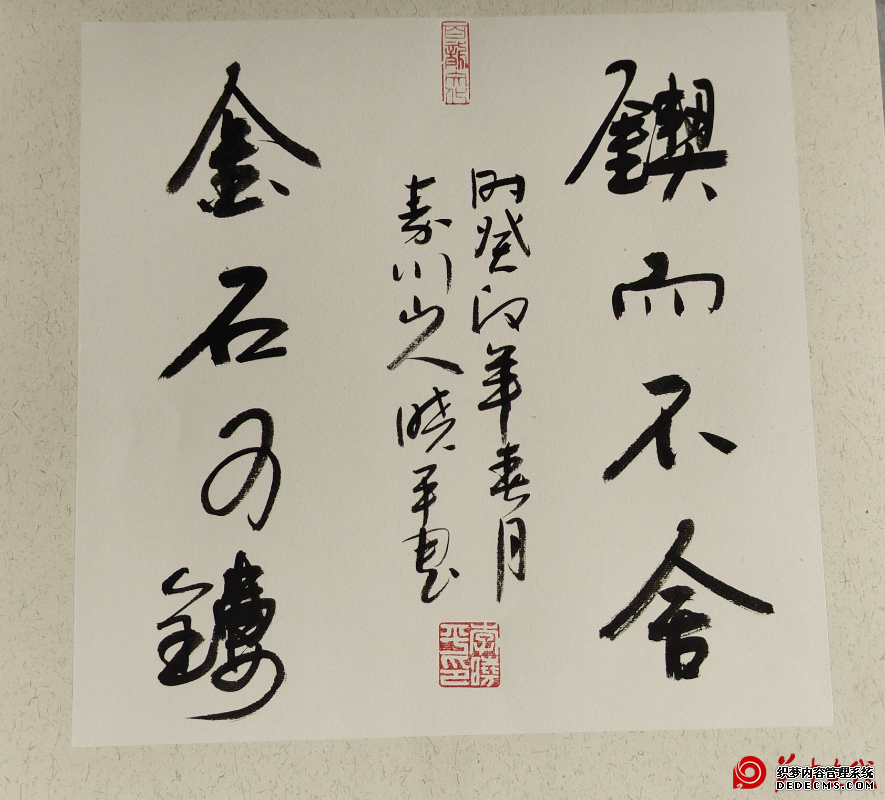 锲而不舍
金石可镂
时癸卯年春月
嘉川山人晓平书
织梦内容管理系统
DEDECMS.COM